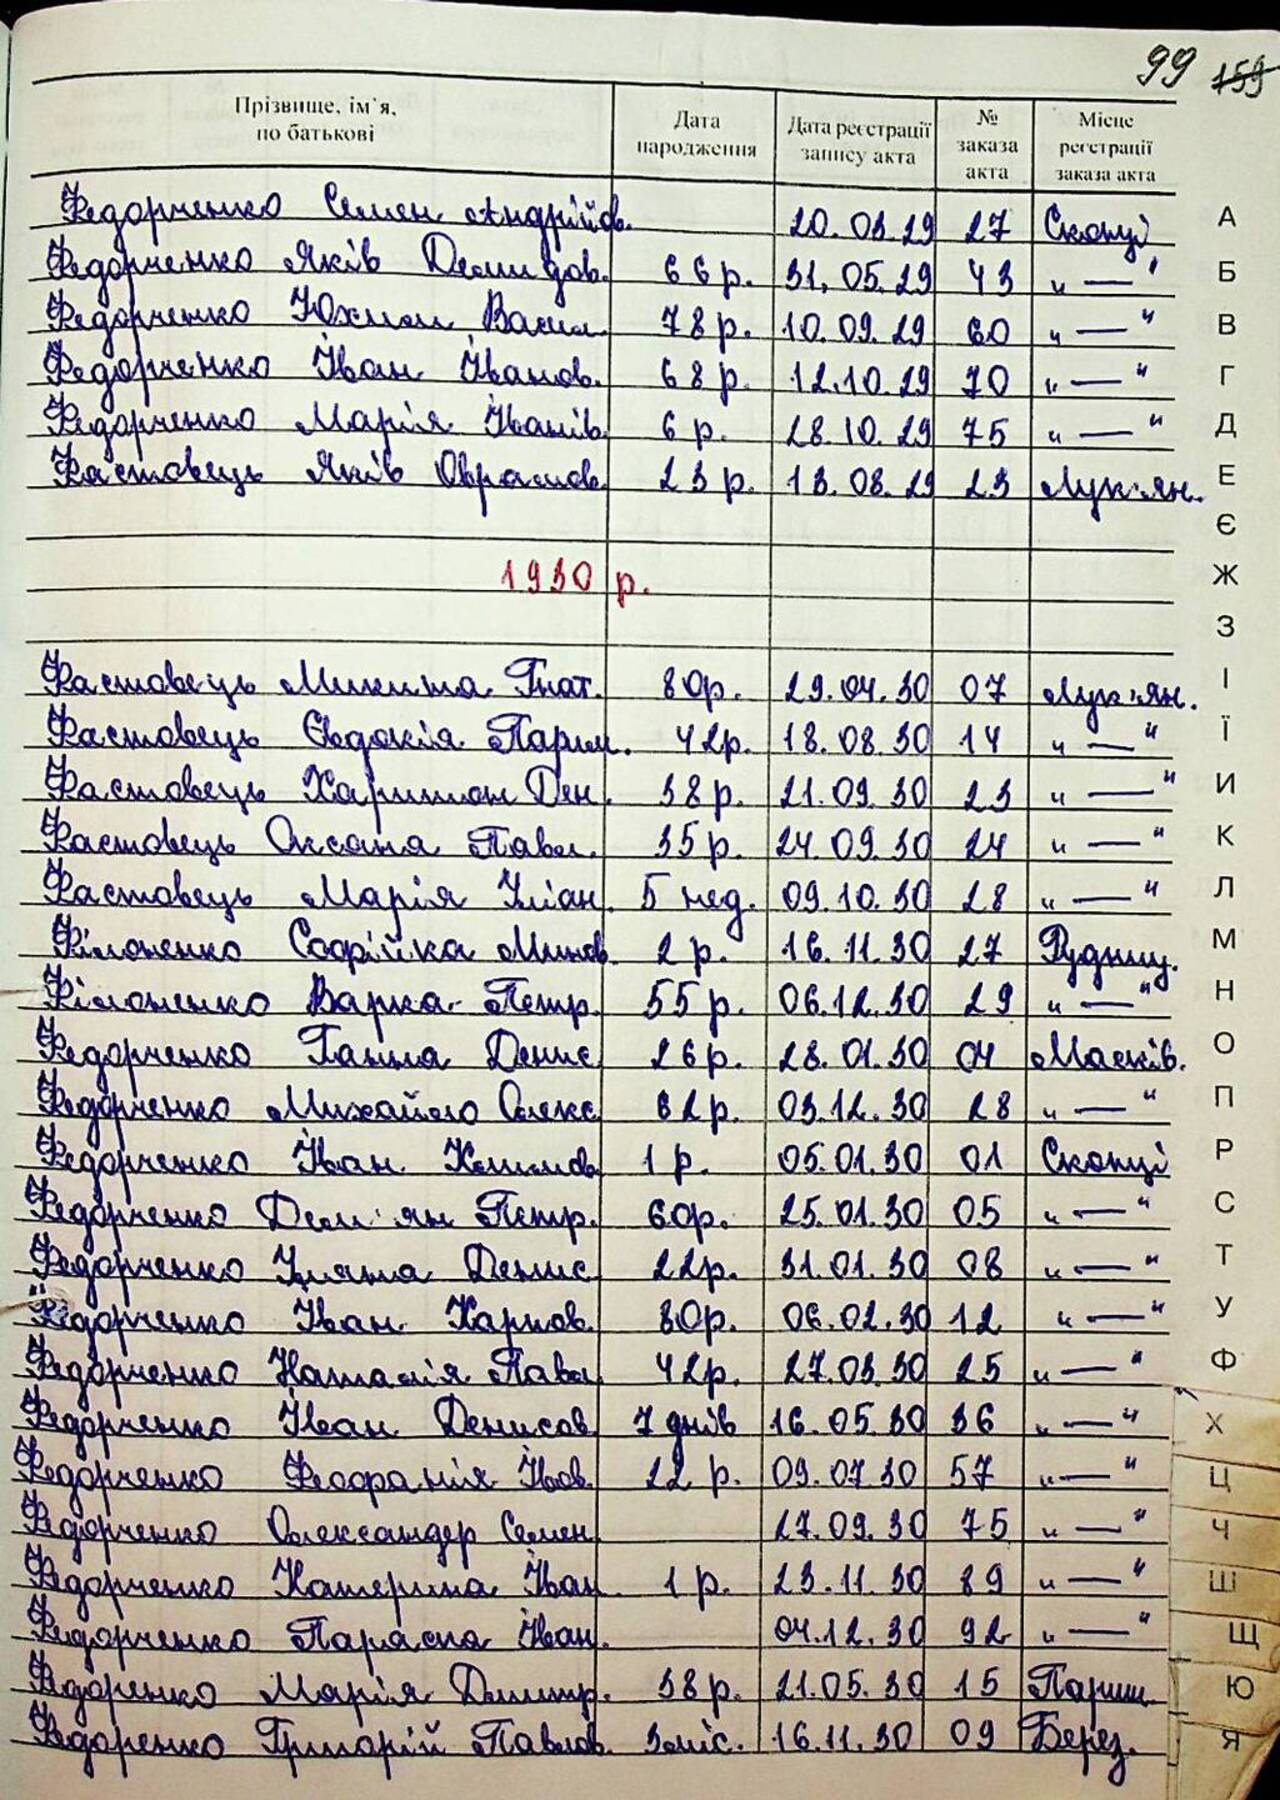 99 159
Прізвище, ім'я, по батькові Дата народження Дата реєстрації запису акта № заказа акта Місце реєстрації заказа акта
Федорченко Семен Андрійов. 20.03.29 27 Скопці А
Федорченко Яків Демидов. 66 р. 31.05.29 43 „ — " Б
Федорченко Юхим Васил. 78 р. 10.09.29 60 „ — " В
Федорченко Іван Іванов. 68 р. 12.10.29 70 „ — " Г
Федорченко Марія Іванів. 6 р. 28.10.29 75 „ — " Д
Фастовець Яків Оврамов. 23 р. 13.08.29 23 Лук'ян. Е
Є
1930 р. Ж
З
Фастовець Микита Гнат. 80р. 29.04.30 07 Лук'ян. І
Фастовець Євдокія Парим. 42р. 18.08.30 14 „ — " Ї
Фастовець Харитон Ден. 38 р. 21.09.30 23 „ — " И
Фастовець Оксана Павл. 35 р. 24.09.30 24 „ — " К
Фастовець Марія Уліан. 5 нед. 09.10.30 28 „ — " Л
Філоненко Софійка Минов. 2 р. 16.11.30 27 Рудниц. М
Філоненко Варка Петр. 55 р. 06.12.30 29 „ — " Н
Федорченко Ганна Денис. 26 р. 28.01.30 04 Масків. О
Федорченко Михайло Олекс. 62р. 03.12.30 28 „ — " П
Федорченко Іван Климов. 1 р. 05.01.30 01 Скопці Р
Федорченко Дем'ян Петр. 60р. 25.01.30 05 „ — " С
Федорченко Уляна Денис. 22р. 31.01.30 08 „ — " Т
Федорченко Іван Карпов. 80р. 06.02.30 12 „ — " У
Федорченко Наталія Павл. 42р. 27.03.30 25 „ — " Ф
Федорченко Іван Денисов. 7 днів 16.05.30 36 „ — " Х
Федорченко Феофанія Яков. 22 р. 09.07.30 57 „ — " Ц
Федорченко Олександер Семен. 27.09.30 75 „ — " Ч
Федорченко Катерина Іван. 1 р. 23.11.30 89 „ — " Ш
Федорченко Параска Іван. 04.12.30 92 „ — " Щ
Федоренко Марія Дмитр. 38 р. 21.05.30 15 Париш. Ю
Федоренко Григорій Павлов. 3 міс. 16.11.30 09 Берез. Я